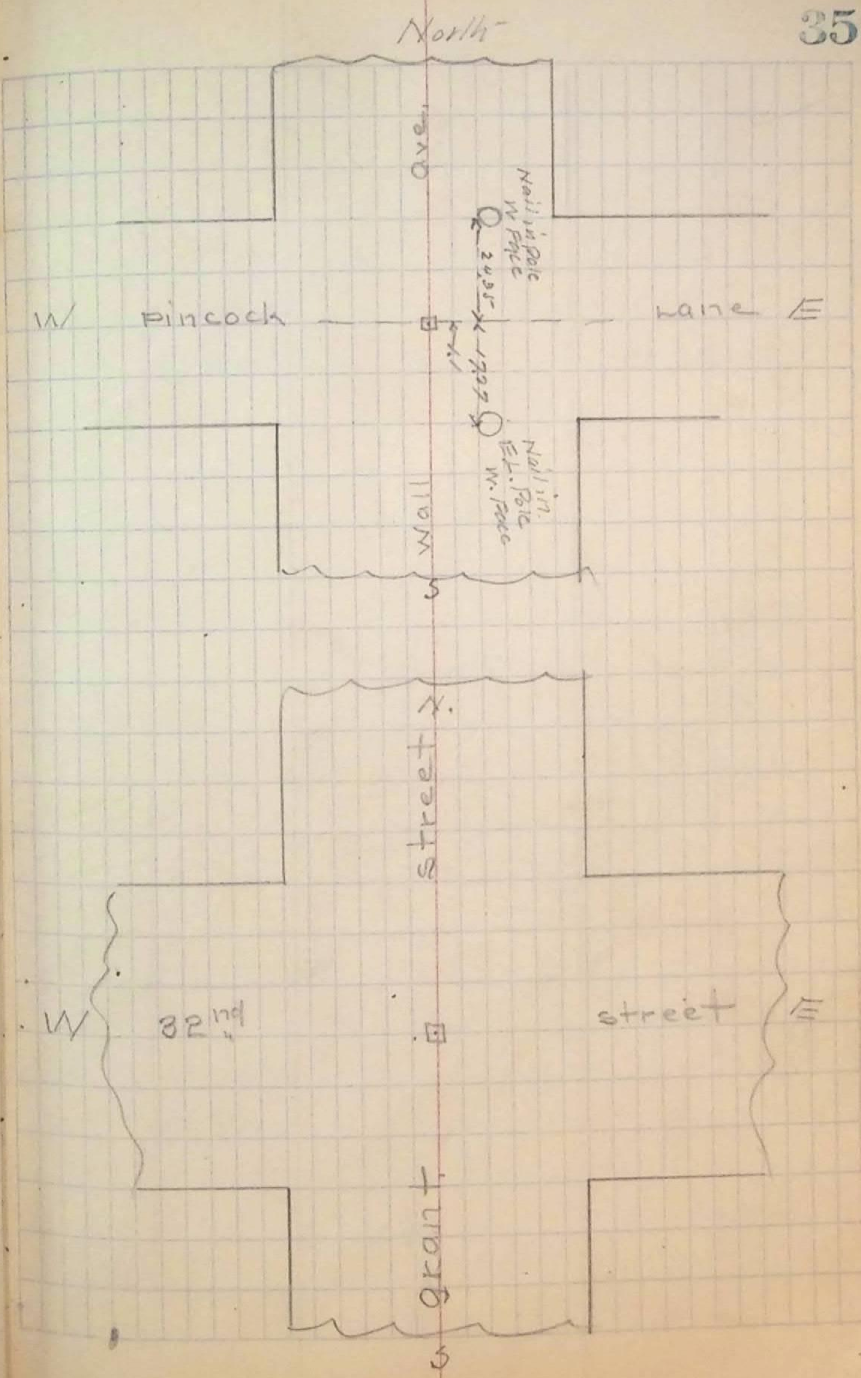 North
35
Ave.
Nail in Pole
W Face
24.35
W Pincock Lane E
1.1
17.27
Nail in
El. Pole
W. Face
Wall
S
N.
street
W 32nd street E
grant
S